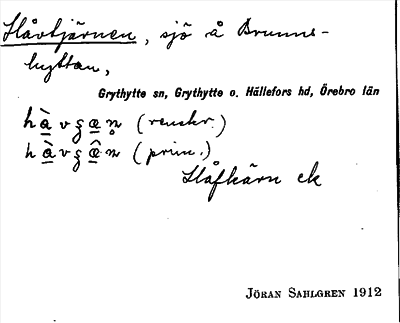 Håvtjärnen, sjö å Brunns-
hyttan,
Grythytte sn, Grythytte o. Hällefors hd, Örebro län
(renskr.)
(prim.)
Håfkärn ek
JÖRAN SAHLGREN 1912